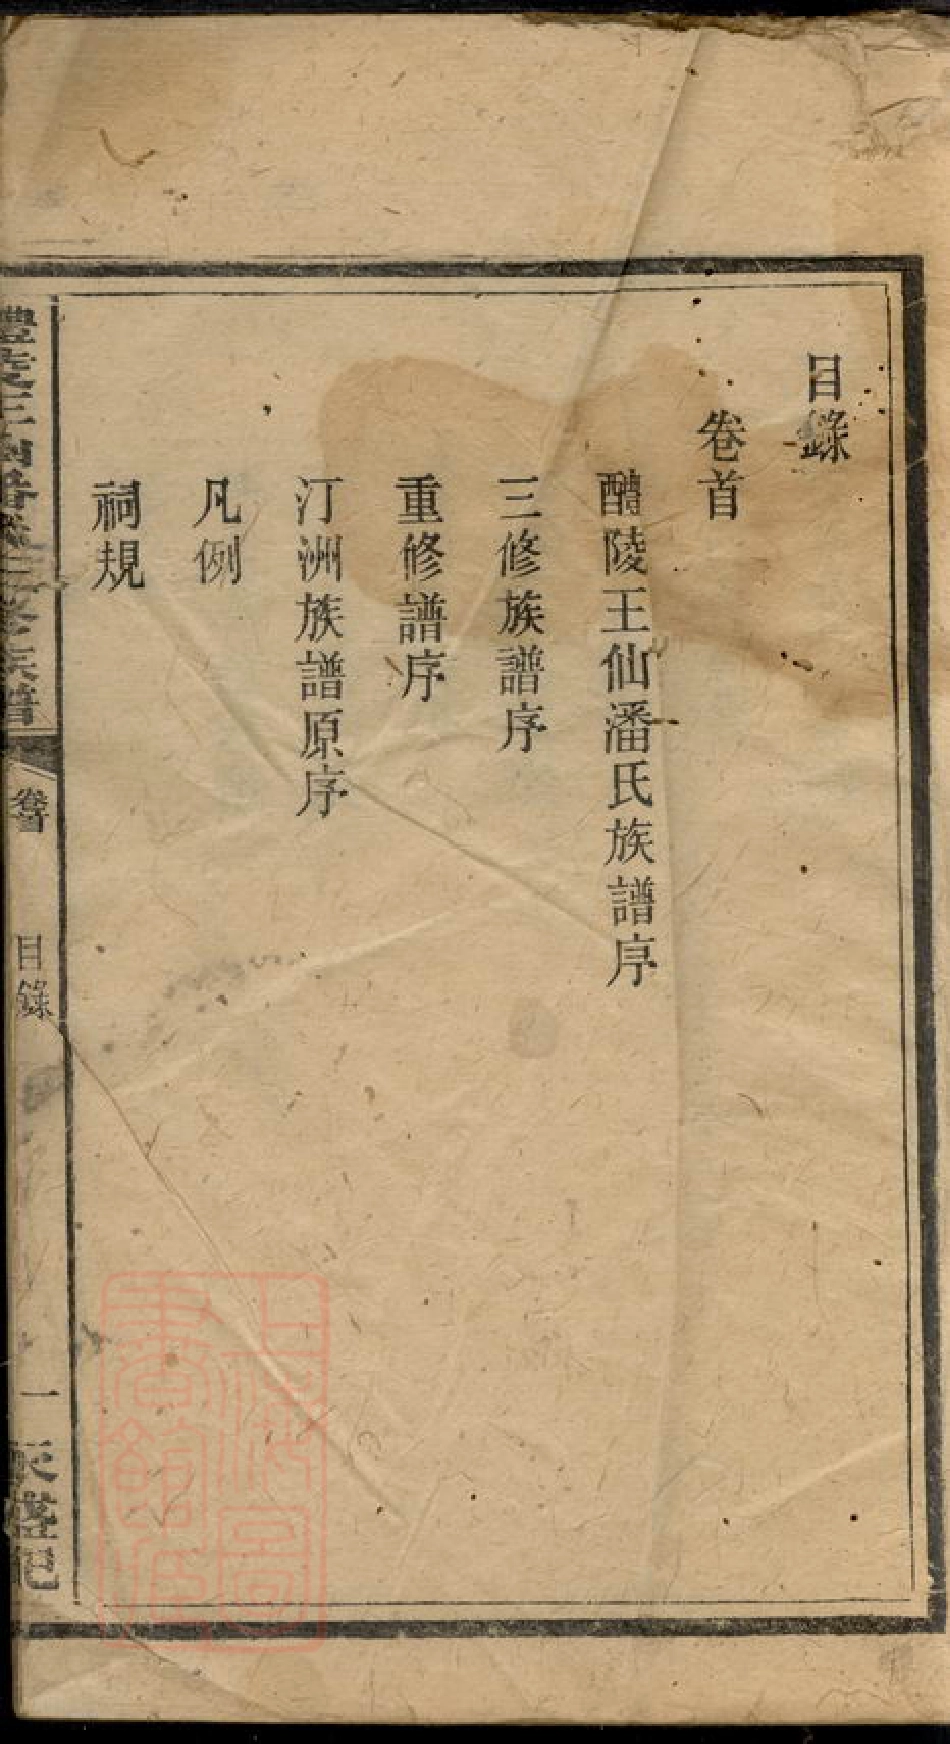 目錄
卷首
醴陵王仙潘氏族譜序
三修族譜序
重修譜序
汀洲族譜原序
凡例
祠規
卷首
目錄
一
上海圖書館藏